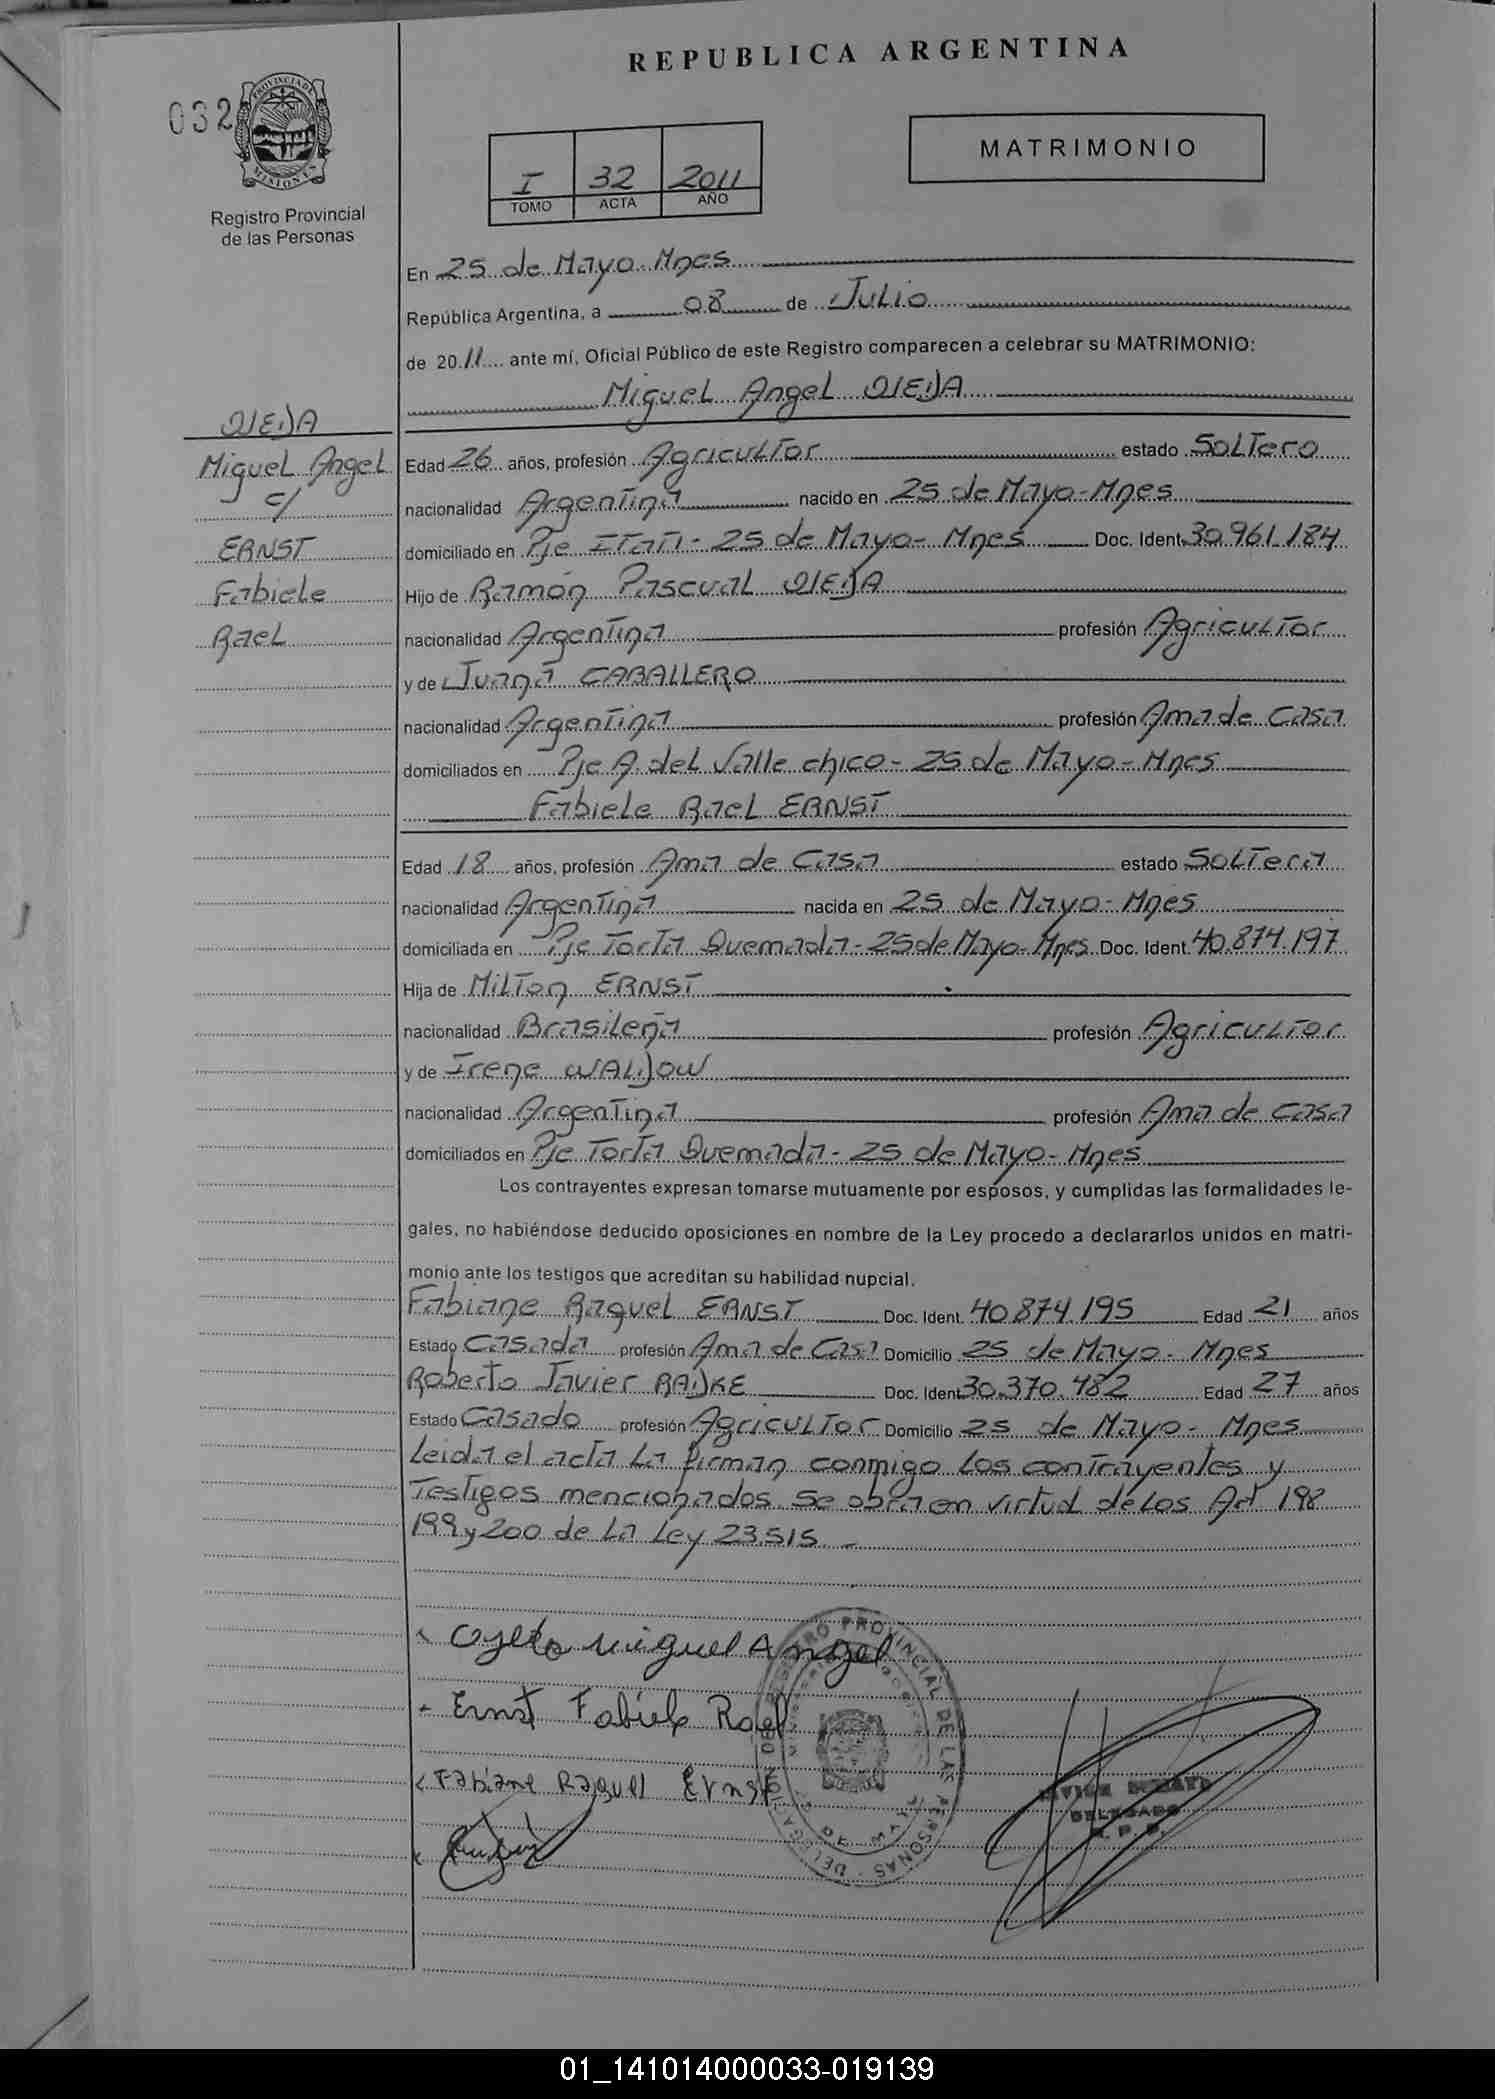 REPUBLICA ARGENTINA
032
PROVINCIA DE MISIONES
Registro Provincial
de las Personas
MATRIMONIO
I 32 2011
TOMO ACTA AÑO
En 25 de Mayo Mnes
República Argentina, a 08 de Julio
de 2011 ante mí, Oficial Público de este Registro comparecen a celebrar su MATRIMONIO:
Miguel Angel OJEDA
OJEDA
Miguel Angel
c/
ERNST
Fabiele
Rael
Edad 26 años, profesión Agricultor estado Soltero
nacionalidad Argentina nacido en 25 de Mayo-Mnes
domiciliado en Pje Itati - 25 de Mayo - Mnes Doc. Ident. 30.961.184
Hijo de Ramón Pascual OJEDA
nacionalidad Argentina profesión Agricultor
y de Juana CABALLERO
nacionalidad Argentina profesión Ama de Casa
domiciliados en Pje A. del Valle chico - 25 de Mayo - Mnes
Fabiele Rael ERNST
Edad 18 años, profesión Ama de Casa estado Soltera
nacionalidad Argentina nacida en 25 de Mayo - Mnes
domiciliada en Pje Torta Quemada - 25 de Mayo - Mnes Doc. Ident. 40.874.197
Hija de Milton ERNST
nacionalidad Brasileña profesión Agricultor
y de Irene WALDOW
nacionalidad Argentina profesión Ama de casa
domiciliados en Pje Torta Quemada - 25 de Mayo - Mnes
Los contrayentes expresan tomarse mutuamente por esposos, y cumplidas las formalidades le-
gales, no habiéndose deducido oposiciones en nombre de la Ley procedo a declararlos unidos en matri-
monio ante los testigos que acreditan su habilidad nupcial.
Fabiane Raquel ERNST Doc. Ident. 40.874.195 Edad 21 años
Estado Casada profesión Ama de Casa Domicilio 25 de Mayo - Mnes
Roberto Javier RADKE Doc. Ident. 30.370.482 Edad 27 años
Estado Casado profesión Agricultor Domicilio 25 de Mayo - Mnes
Leida el acta La firman conmigo los contrayentes y
Testigos mencionados se obra en virtud de los Art 198
199 y 200 de La Ley 23.515 -
Ojeda Miguel Angel
Ernst Fabiele Rael
Fabiane Raquel Ernst
REGISTRO PROVINCIAL DE LAS PERSONAS - DELEGACION
25 DE MAYO
DELEGADO
01_141014000033-019139